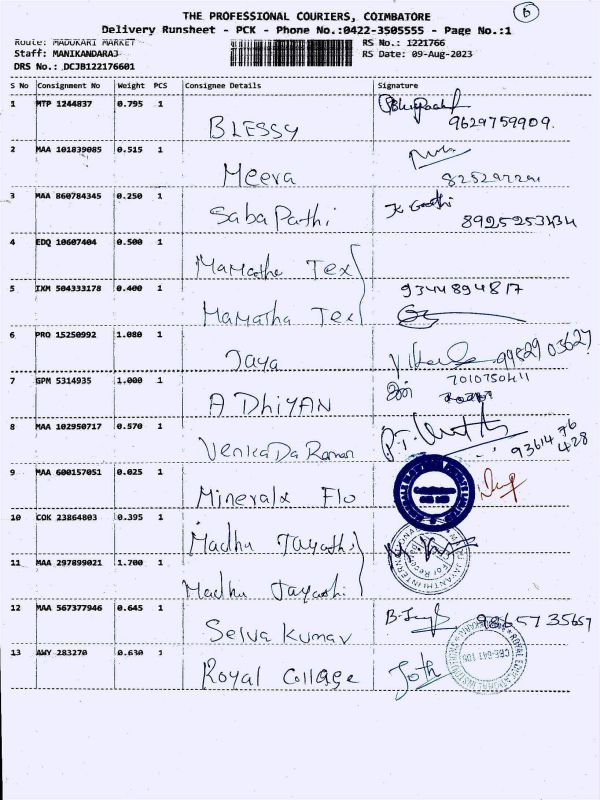 THE PROFESSIONAL COURIERS, COIMBATORE
6
Delivery Runsheet - PCK - Phone No.:0422-3505555 - Page No.:1
Route: MADUKARI MARKET
RS No.: 1221766
Staff: MANIKANDARAJ
RS Date: 09-Aug-2023
DRS No.: DCJB122176601
S No Consignment No Weight PCS Consignee Details Signature
1 MTP 1244837 0.795 1 BLESSY 9629759909.
2 MAA 101839085 0.515 1 Meera
3 MAA 860784345 0.250 1 Saba Pathi
4 EDQ 10607404 0.500 1 Mamatha Tex
5 IXM 504333178 0.400 1 Mamatha Tex 9344894817
6 PRQ 15250992 1.080 1 Jaya 9982903627
7 GPM 5314935 1.000 1 ADHiYAN 7010750411
8 MAA 102950717 0.570 1 VenkaDa Raman 9361476428
9 MAA 600157051 0.025 1 Minerala Flo
10 COK 23864803 0.395 1 Madhu Jayathi
11 MAA 297899021 1.700 1 Madhu Jayashi
12 MAA 567377946 0.645 1 Selva Kumar 9865735657
13 AWY 283270 0.630 1 Royal Collage Joth